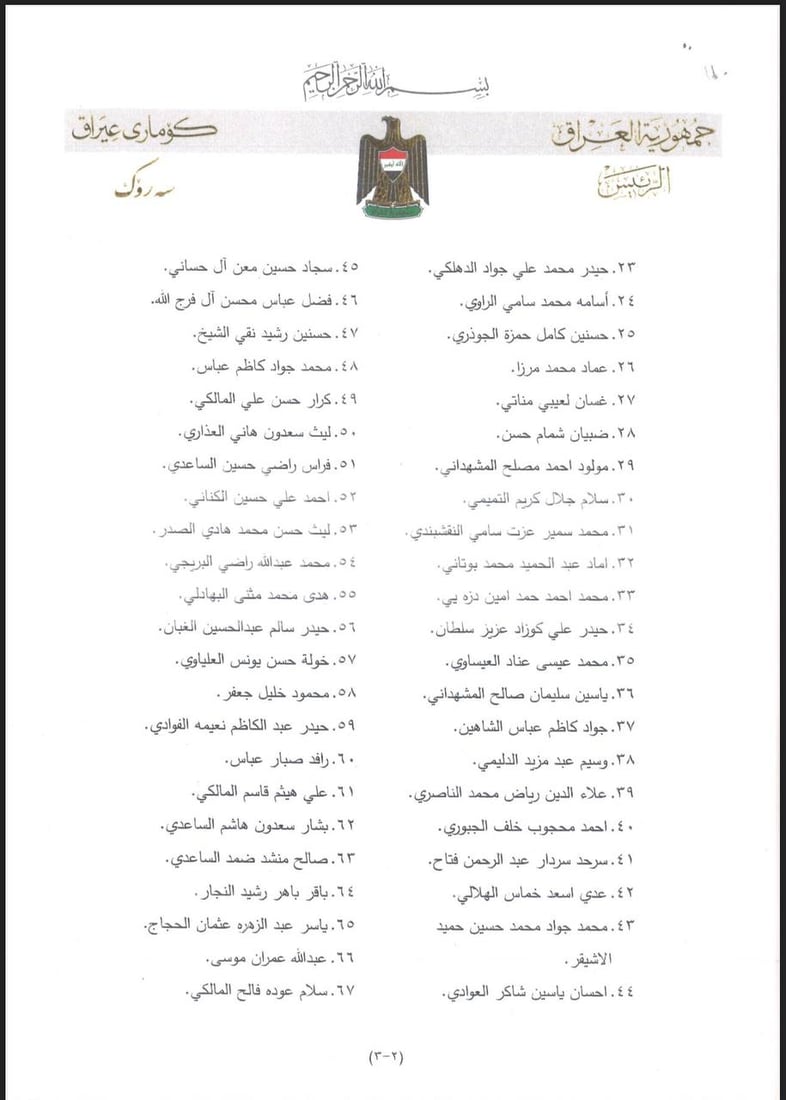 بسم الله الرحمن الرحيم
جمهورية العراق
الرئيس
كۆماری عێراق
سەرۆک
الله أكبر
٢٣. حيدر محمد علي جواد الدهلكي.
٢٤. أسامه محمد سامي الراوي.
٢٥. حسنين كامل حمزة الجوذري.
٢٦. عماد محمد مرزا.
٢٧. غسان لعيبي مناتي.
٢٨. ضبيان شمام حسن.
٢٩. مولود احمد مصلح المشهداني.
٣٠. سلام جلال كريم التميمي.
٣١. محمد سمير عزت سامي النقشبندي.
٣٢. اماد عبد الحميد محمد بوتاني.
٣٣. محمد احمد حمد امين دزه يي.
٣٤. حيدر علي كوزاد عزيز سلطان.
٣٥. محمد عيسى عناد العيساوي.
٣٦. ياسين سليمان صالح المشهداني.
٣٧. جواد كاظم عباس الشاهين.
٣٨. وسيم عبد مزيد الدليمي.
٣٩. علاء الدين رياض محمد الناصري.
٤٠. احمد محجوب خلف الجبوري.
٤١. سرحد سردار عبد الرحمن فتاح.
٤٢. عدي اسعد خماس الهلالي.
٤٣. محمد جواد محمد حسين حميد
الاشيقر.
٤٤. احسان ياسين شاكر العوادي.
٤٥. سجاد حسين معن آل حساني.
٤٦. فضل عباس محسن آل فرج الله.
٤٧. حسنين رشيد نقي الشيخ.
٤٨. محمد جواد كاظم عباس.
٤٩. كرار حسن علي المالكي.
٥٠. ليث سعدون هاني العذاري.
٥١. فراس راضي حسين الساعدي.
٥٢. احمد علي حسين الكناني.
٥٣. ليث حسن محمد هادي الصدر.
٥٤. محمد عبدالله راضي البريجي.
٥٥. هدى محمد مثنى البهادلي.
٥٦. حيدر سالم عبدالحسين الغبان.
٥٧. خولة حسن يونس العلياوي.
٥٨. محمود خليل جعفر.
٥٩. حيدر عبد الكاظم نعيمه الفوادي.
٦٠. رافد صبار عباس.
٦١. علي هيثم قاسم المالكي.
٦٢. بشار سعدون هاشم الساعدي.
٦٣. صالح منشد ضمد الساعدي.
٦٤. باقر باهر رشيد النجار.
٦٥. ياسر عبد الزهره عثمان الحجاج.
٦٦. عبدالله عمران موسى.
٦٧. سلام عوده فالح المالكي.
(٢-٣)